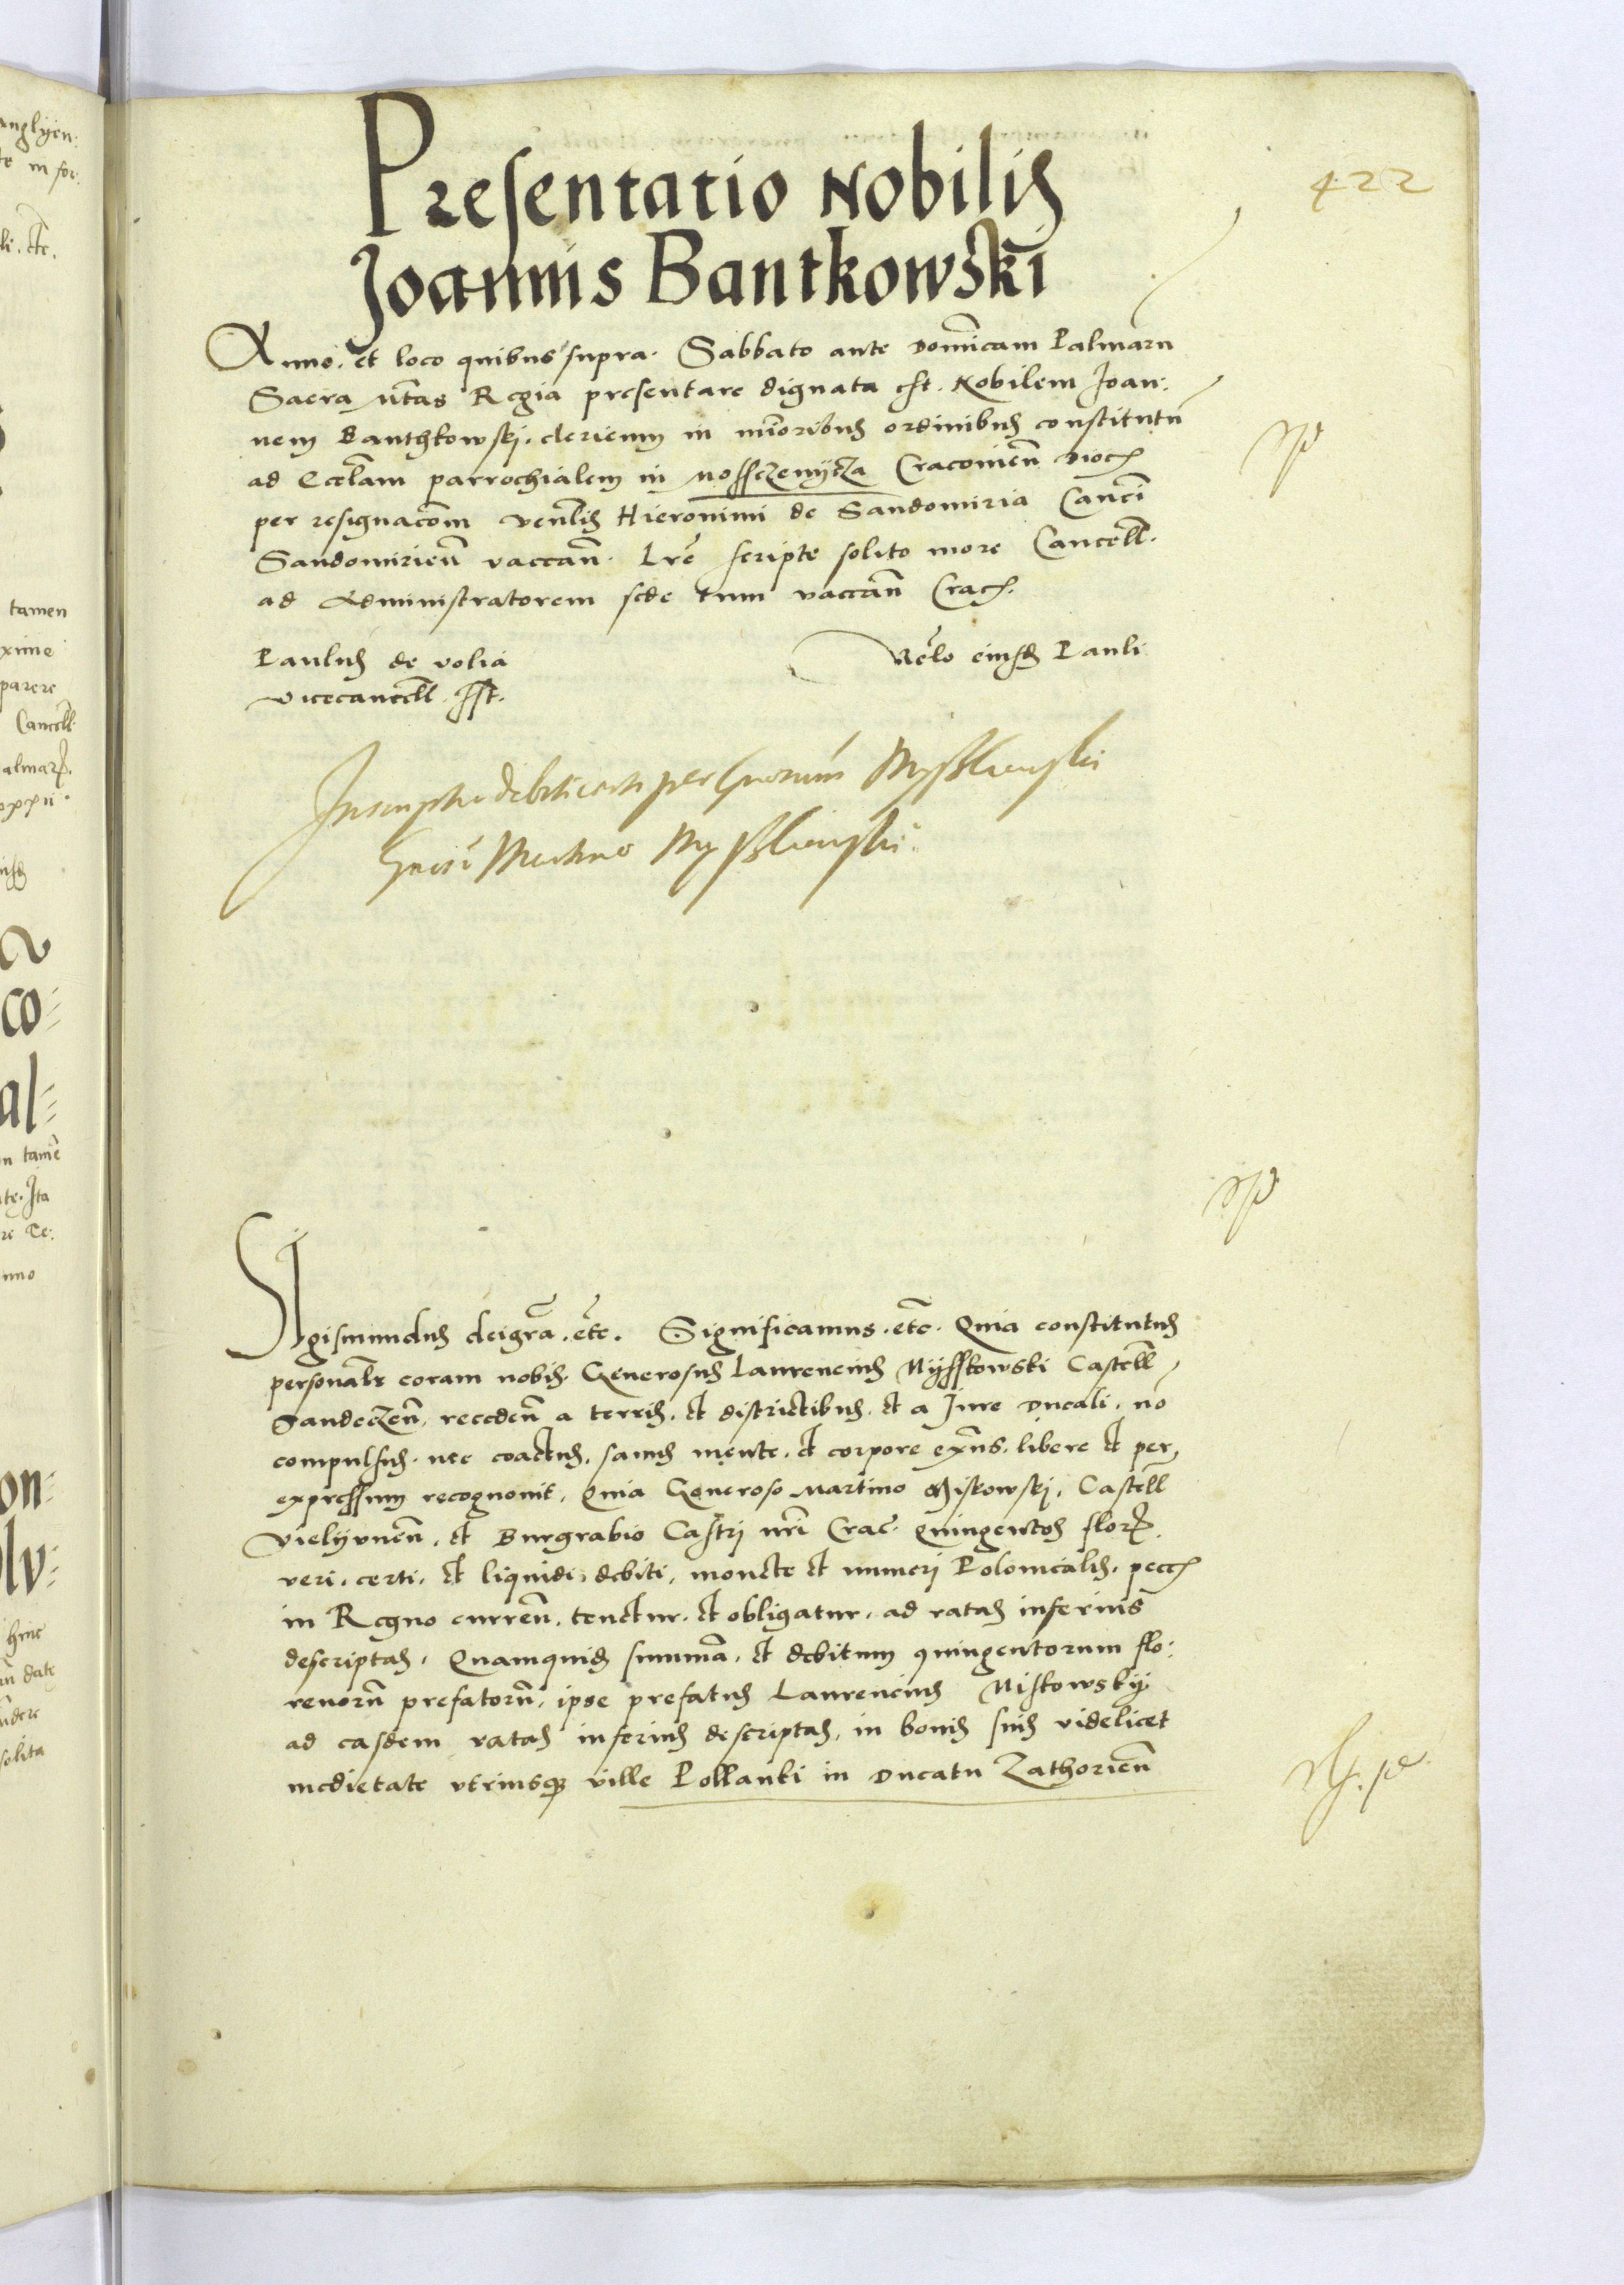 422
Presentatio Nobilis
Joannis Bantkowski
Anno. et loco quibus supra. Sabbato ante Dominicam Palmarū
Sacra Mtas Regia presentare dignata est. Nobilem Joan:
nem Banthkowskj. clericum in minoribus ordinibus constitutū
ad Ecclam parrochialem in Mosſczenycza Cracovieñ Dioc
per resignacōm Venlis Hieronimi de Sandomiria Canci
Sandomirieñ vaccañ. Lrē scripte solito more Cancell.
ad Administratorem sede tum vaccañ Crac.
Paulus de volia
vicecancell. sst.
Relo eiusd Pauli
Inscriptio debiti certi per Gnosum Myſſkowski
Gnoso Martino Myſſkowski
Sigismundus dei gra. etc. Significamus. etc. Quia constitutus
personalr coram nobis. Generosus Laurencius Myſſkowski Castell
Sandeczeñ. recedeñ a terris. et districtibus. et a Jure Ducali. no
compulsus. nec coactus. sanus mente. et corpore exñs. libere et per
expressum recognovit. Quia Generoso Martino Miskowskj. Castell
Vielyvneñ. et Burgrabio Castrj nri Crac. Quingentos flor
veri. certi. et liquidi debiti. monete et numerj Polonicalis. pecc
in Regno curreñ. tenetur. et obligatur. ad ratas inferius
descriptas. Quamquid summā. et debitum quingentorum flo:
renorū prefatorū. ipse prefatus Laurencius Miskowsky
ad easdem ratas inferius descriptas. in bonis suis videlicet
medietate utriusque ville Pollanki in Ducatu Zathorieñ